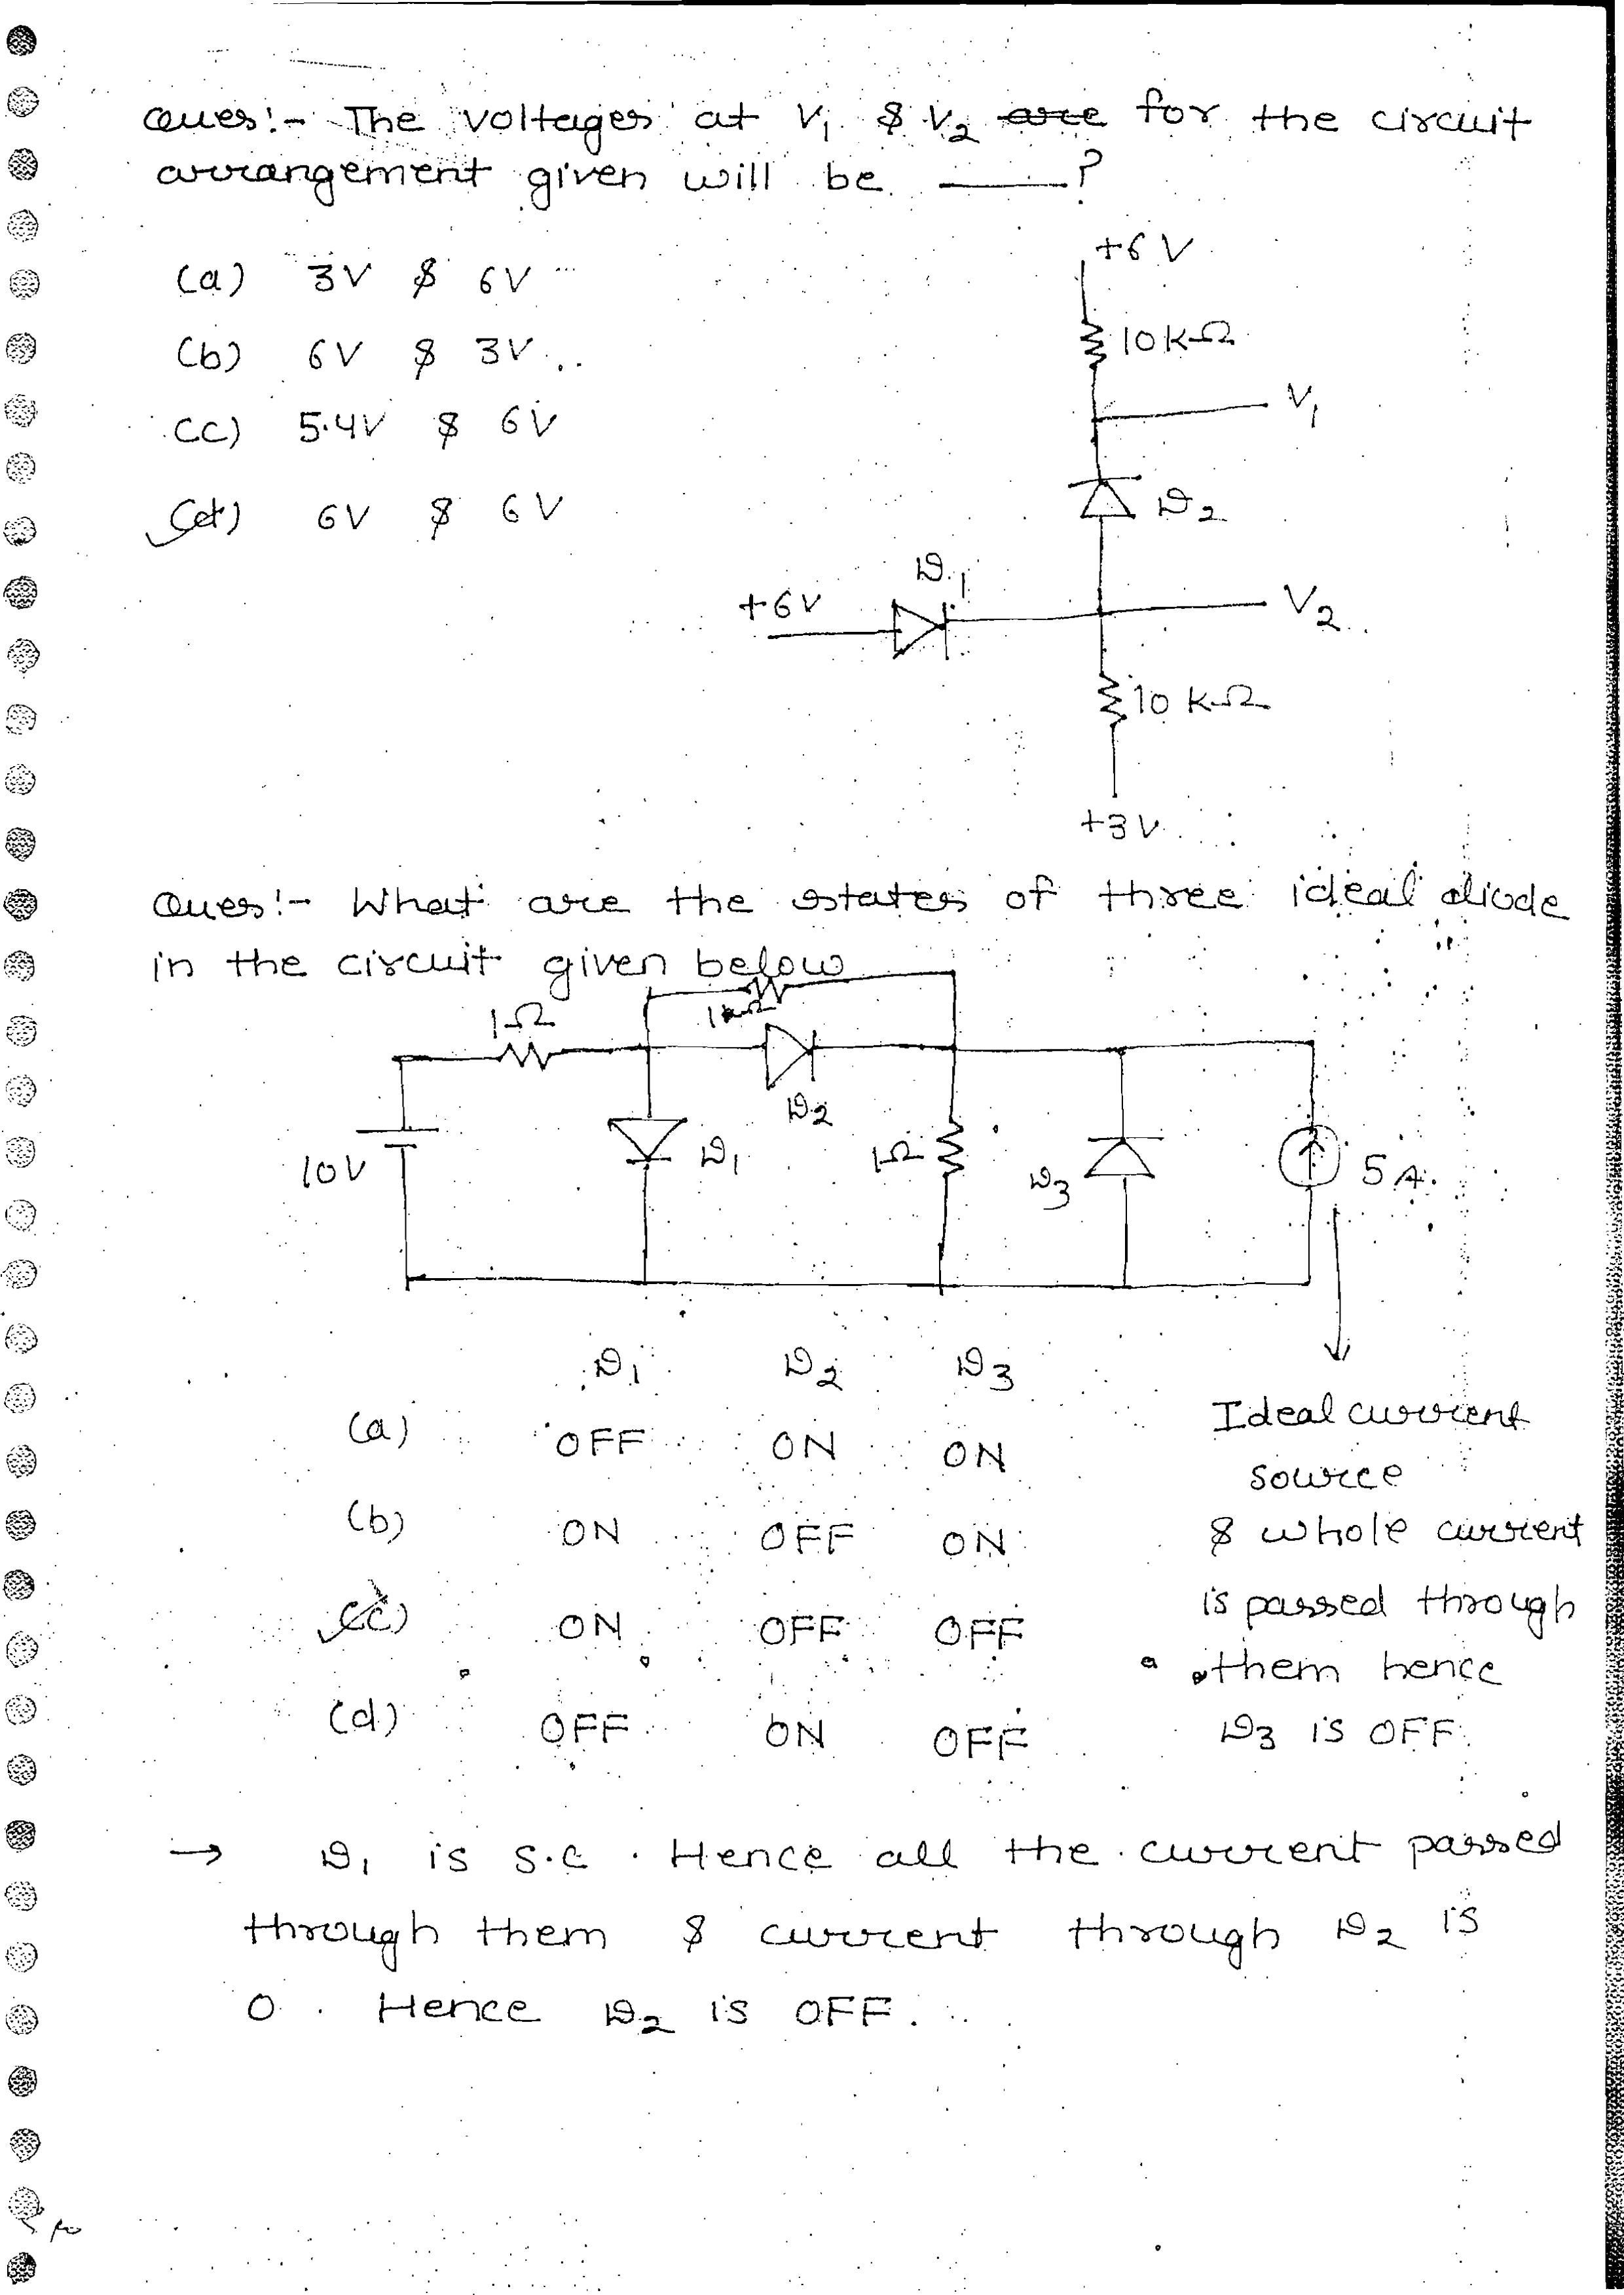 Ques:- The voltages at V1 & V2 are for the circuit
arrangement given will be ____?
+6V
(a) 3V & 6V
10KΩ
(b) 6V & 3V
V1
(c) 5.4V & 6V
D2
(d) 6V & 6V
D1
+6V
V2
10 KΩ
+3V
Ques:- What are the states of three ideal diode
in the circuit given below
1Ω
D2
10V
D1
1Ω
D3
5A.
D1 D2 D3
(a) OFF ON ON
(b) ON OFF ON
(c) ON OFF OFF
(d) OFF ON OFF
Ideal current
source
& whole current
is passed through
them hence
D3 is OFF.
→ D1 is s.c. Hence all the current passed
through them & current through D2 is
0. Hence D2 is OFF.